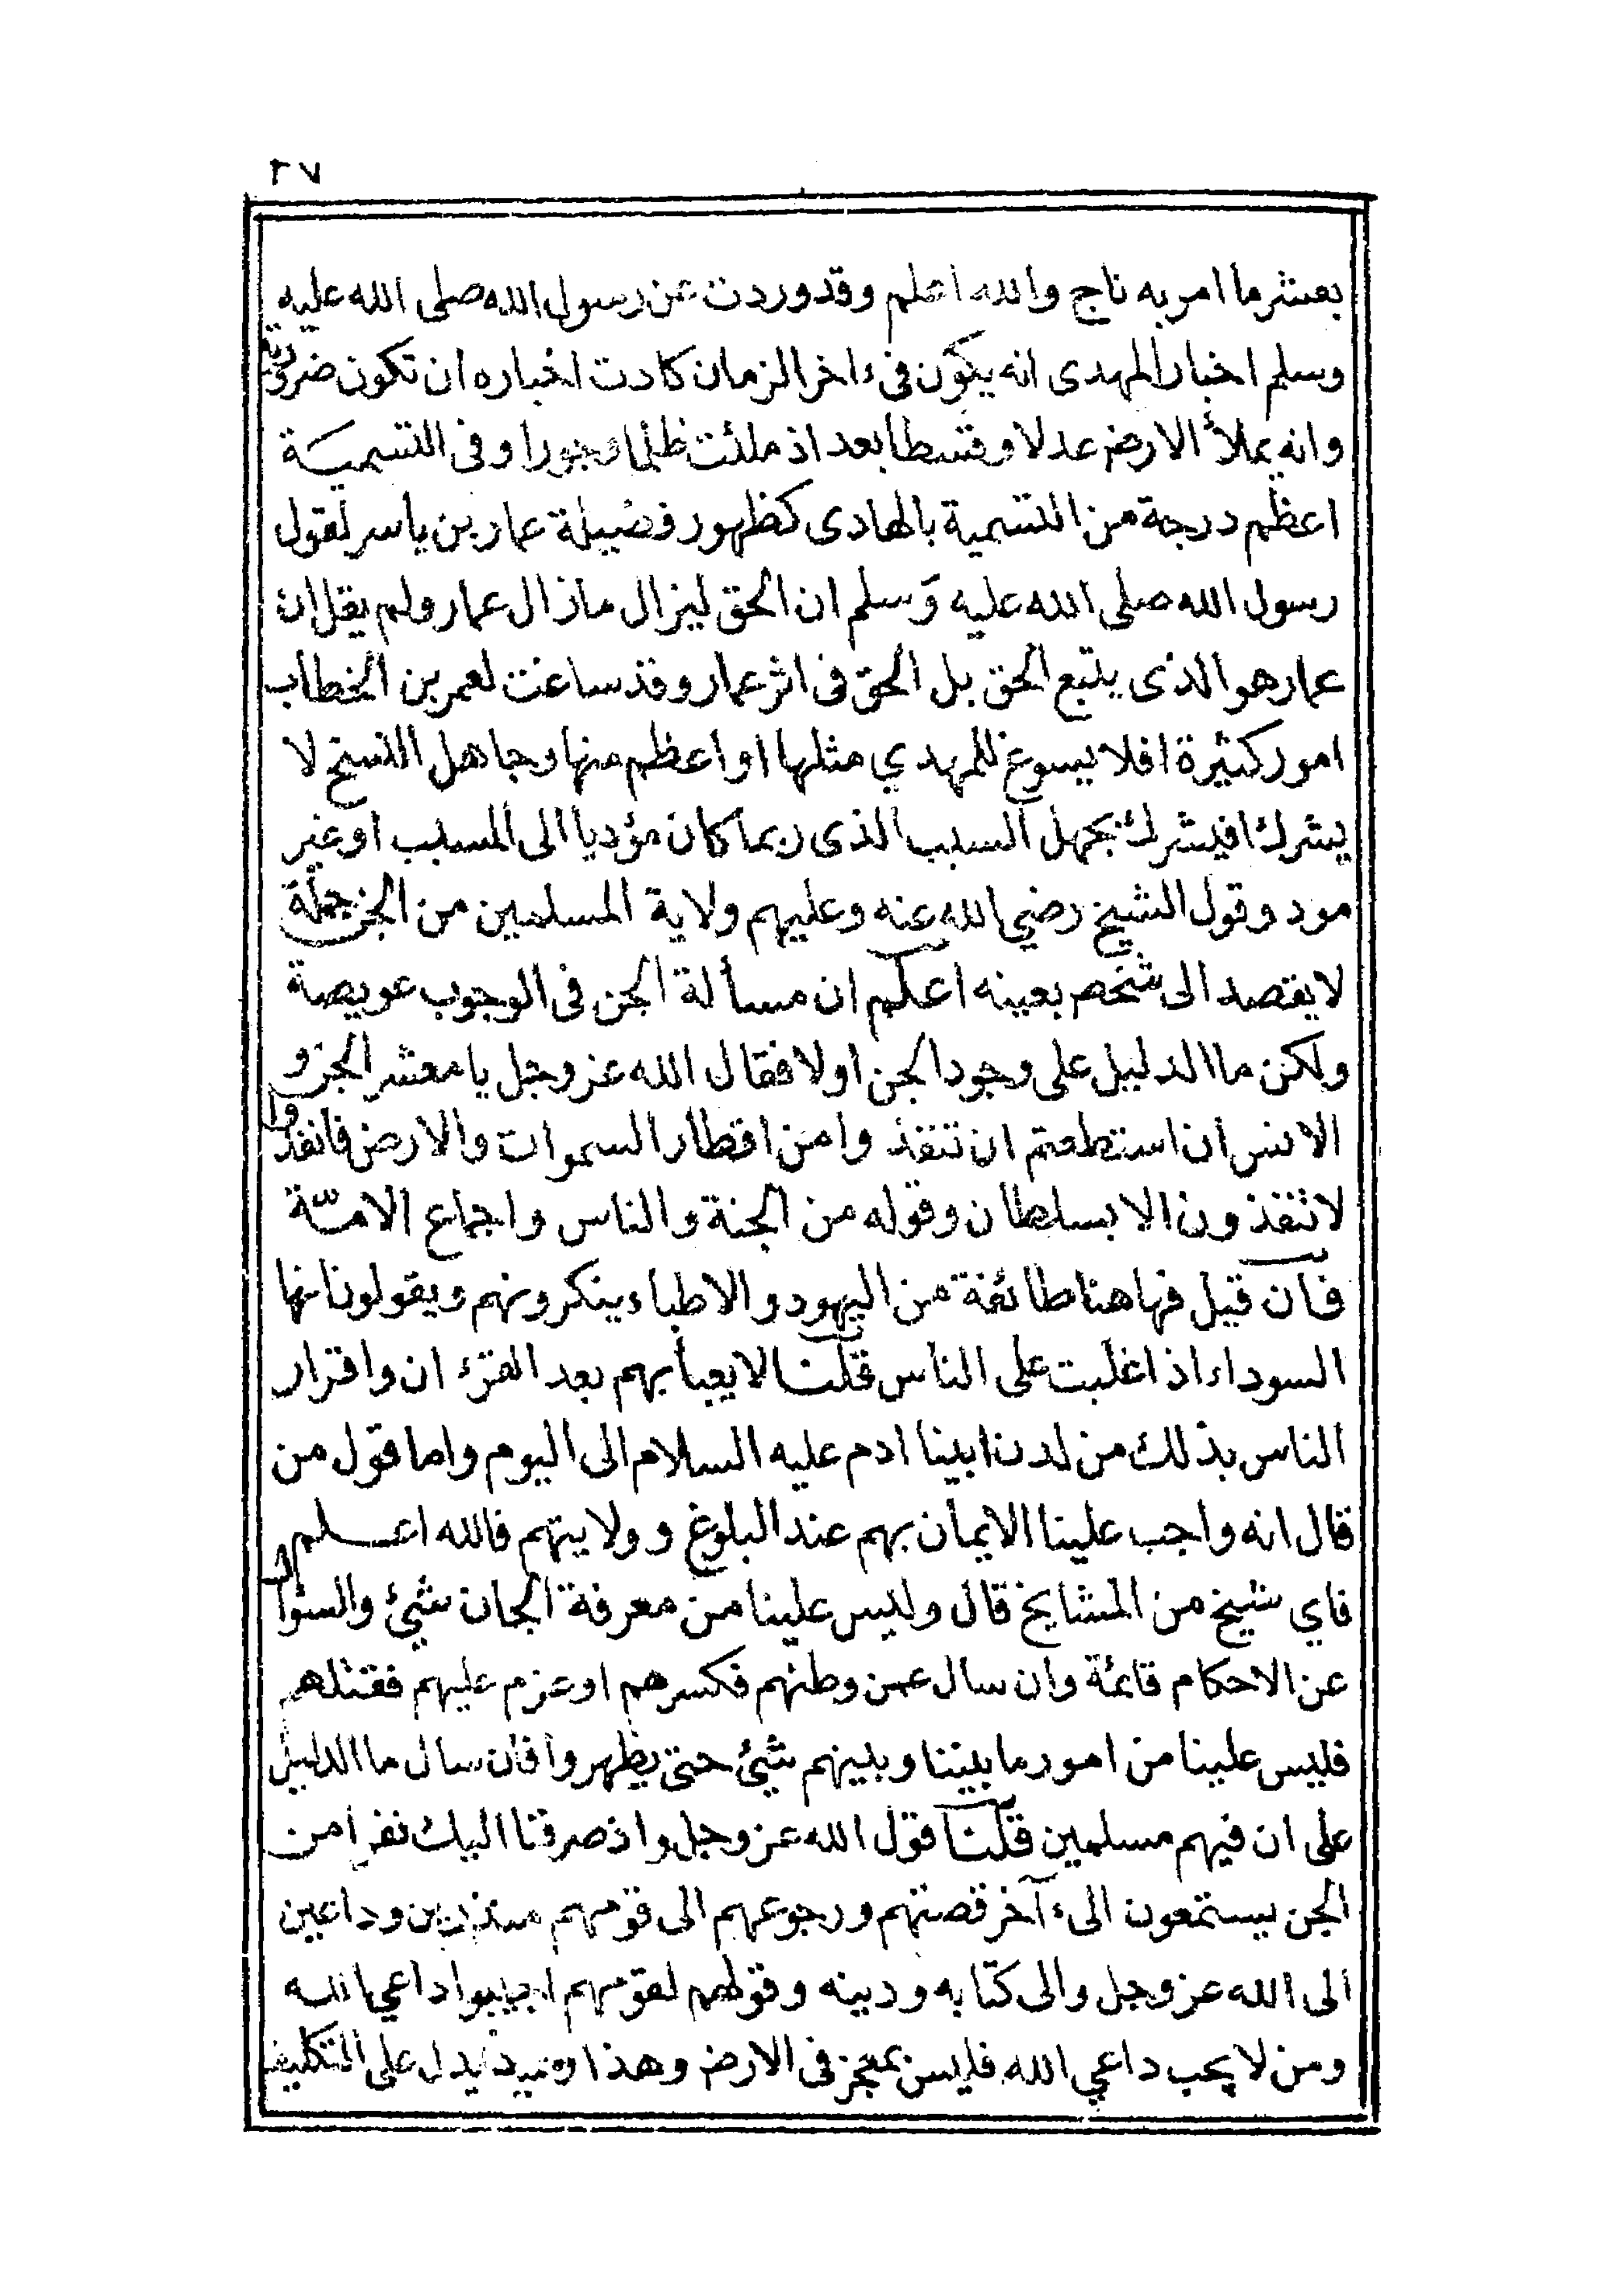 ٢٧
بعشر ما امر به ناج والله اعلم وقد وردت عن رسول الله صلى الله عليه
وسلم اخبار المهدى انه يكون فى ءاخر الزمان كادت اخباره ان تكون ضرورية
وانه يملأ الارض عدلا وقسطا بعد اذ ملئت ظلما وجورا وفى التسمية
اعظم درجة من التسمية بالهادى كظهور فضيلة عمار بن ياسر لقول
رسول الله صلى الله عليه وسلم ان الحق ليزال ما زال عمار ولم يقل ان
عمار هو الذى يتبع الحق بل الحق فى اثر عمار وقد ساغت لعمر بن الخطاب
امور كثيرة افلا يسوغ للمهدي مثلها او اعظم منها وجاهل النسخ لا
يشرك افيشرك بجهل السبب الذى ربما كان مؤديا الى المسبب او غير
مود وقول الشيخ رضي الله عنه وعليهم ولاية المسلمين من الجن جملة
لا يقصد الى شخص بعينه اعلم ان مسألة الجن فى الوجوب عويصة
ولكن ما الدليل على وجود الجن اولا فقال الله عز وجل يا معشر الجن و
الانس ان استطعتم ان تنفذ وا من اقطار السموات والارض فانفذوا
لا تنفذ ون الا بسلطان وقوله من الجنة والناس واجماع الامّة
فان قيل فها هنا طائفة من اليهود والاطباء ينكرونهم ويقولون انها
السوداء اذا غلبت على الناس قلنا لا يعبأ بهم بعد القرء ان واقرار
الناس بذلك من لدن ابينا ادم عليه السلام الى اليوم واما قول من
قال انه واجب علينا الايمان بهم عند البلوغ و ولايتهم فالله اعلم
فاي شيخ من المشايخ قال وليس علينا من معرفة الجان شئ والسؤال
عن الاحكام قائمة وان سال عمن وطئهم فكسرهم او عزم عليهم فقتلهم
فليس علينا من امور ما بيننا وبينهم شئ حتى يظهروا فان سال ما الدليل
على ان فيهم مسلمين قلنا قول الله عز وجل واذ صرفنا اليك نفرا من
الجن يستمعون الى ءآخر قصتهم ورجوعهم الى قومهم منذرين وداعين
الى الله عز وجل والى كتابه ودينه وقولهم لقومهم اجيبوا داعي الله
ومن لا يجب داعي الله فليس بمعجز فى الارض وهذا وعيد يدل على التكليف